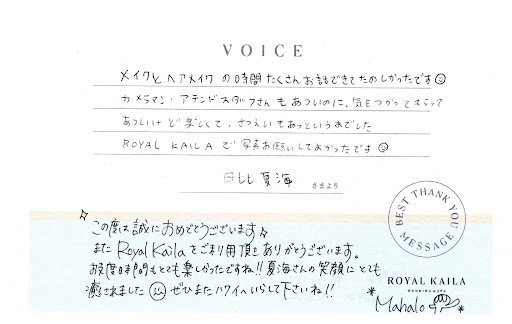 VOICE
メイクとヘアメイクの時間たくさんお話できてたのしかったです
カメラマン・アテンドスタッフさんもあついのに、気をつかってもらって
あついけど楽しくて、さつえいもあっというまでした
ROYAL KAILAで写真お願いしてよかったです
日比 夏海 さまより
この度は誠におめでとうございます
またRoyal Kailaをご利用頂きありがとうございます。
お支度時間もとても楽しかったですね!!夏海さんの笑顔にとても
癒されました ぜひまたハワイへいらして下さいね!!
BEST THANK YOU MESSAGE
ROYAL KAILA
WEDDING & SPA
Mahalo